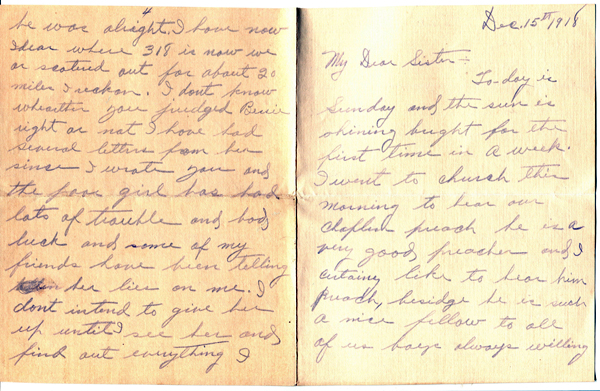 4
he was alright. I have now
Idear where 318 is now we
ar scaterd out for about 20
miles I reckon. I dont know
wheather your judged Bessie
right or not I have had
several letters from her
since I wrote you and
the poor girl has had
lots of trouble and bad
luck and some of my
friends have been telling
her lies on me. I
dont intend to give her
up until I see her and
find out everything I
Dec. 15th 1918
My Dear Sister:
To-day is
Sunday and the sun is
shining bright for the
first time in a week.
I went to church this
morning to hear our
chaplin preach he is a
very good preacher and I
certainy like to hear him
preach, besidge he is such
a nice fellow to all
of us boys always willing